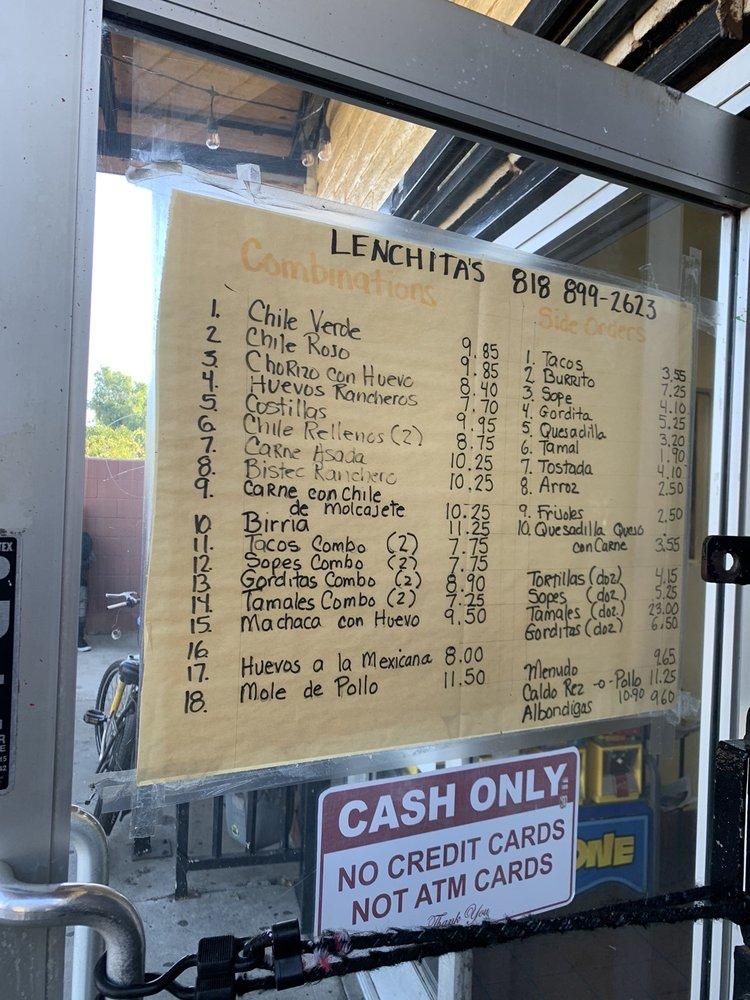 LENCHITA'S 818 899-2623
Combinations
1. Chile Verde 9.85
2 Chile Rojo 9.85
3. Chorizo con Huevo 8.40
4. Huevos Rancheros 7.70
5. Costillas 9.95
6. Chile Rellenos (2) 8.75
7. Carne Asada 10.25
8. Bistec Ranchero 10.25
9. Carne con Chile
de molcajete 10.25
10 Birria 11.25
11. Tacos Combo (2) 7.75
12 Sopes Combo (2) 7.75
13 Gorditas Combo (2) 8.90
14. Tamales Combo (2) 7.25
15. Machaca con Huevo 9.50
16
17. Huevos a la Mexicana 8.00
18. Mole de Pollo 11.50
Side Orders
1. Tacos 3.55
2 Burrito 7.25
3. Sope 4.10
4. Gordita 5.25
5. Quesadilla 3.20
6. Tamal 1.90
7. Tostada 4.10
8. Arroz 2.50
9. Frijoles 2.50
10. Quesadilla Queso
con Carne 3.55
Tortillas (doz) 4.15
Sopes (doz) 5.25
Tamales (doz) 23.00
Gorditas (doz) 6.50
Menudo 9.65
Caldo Rez -o- Pollo 11.25
10.90
Albondigas 9.60
CASH ONLY
NO CREDIT CARDS
NOT ATM CARDS
Thank You